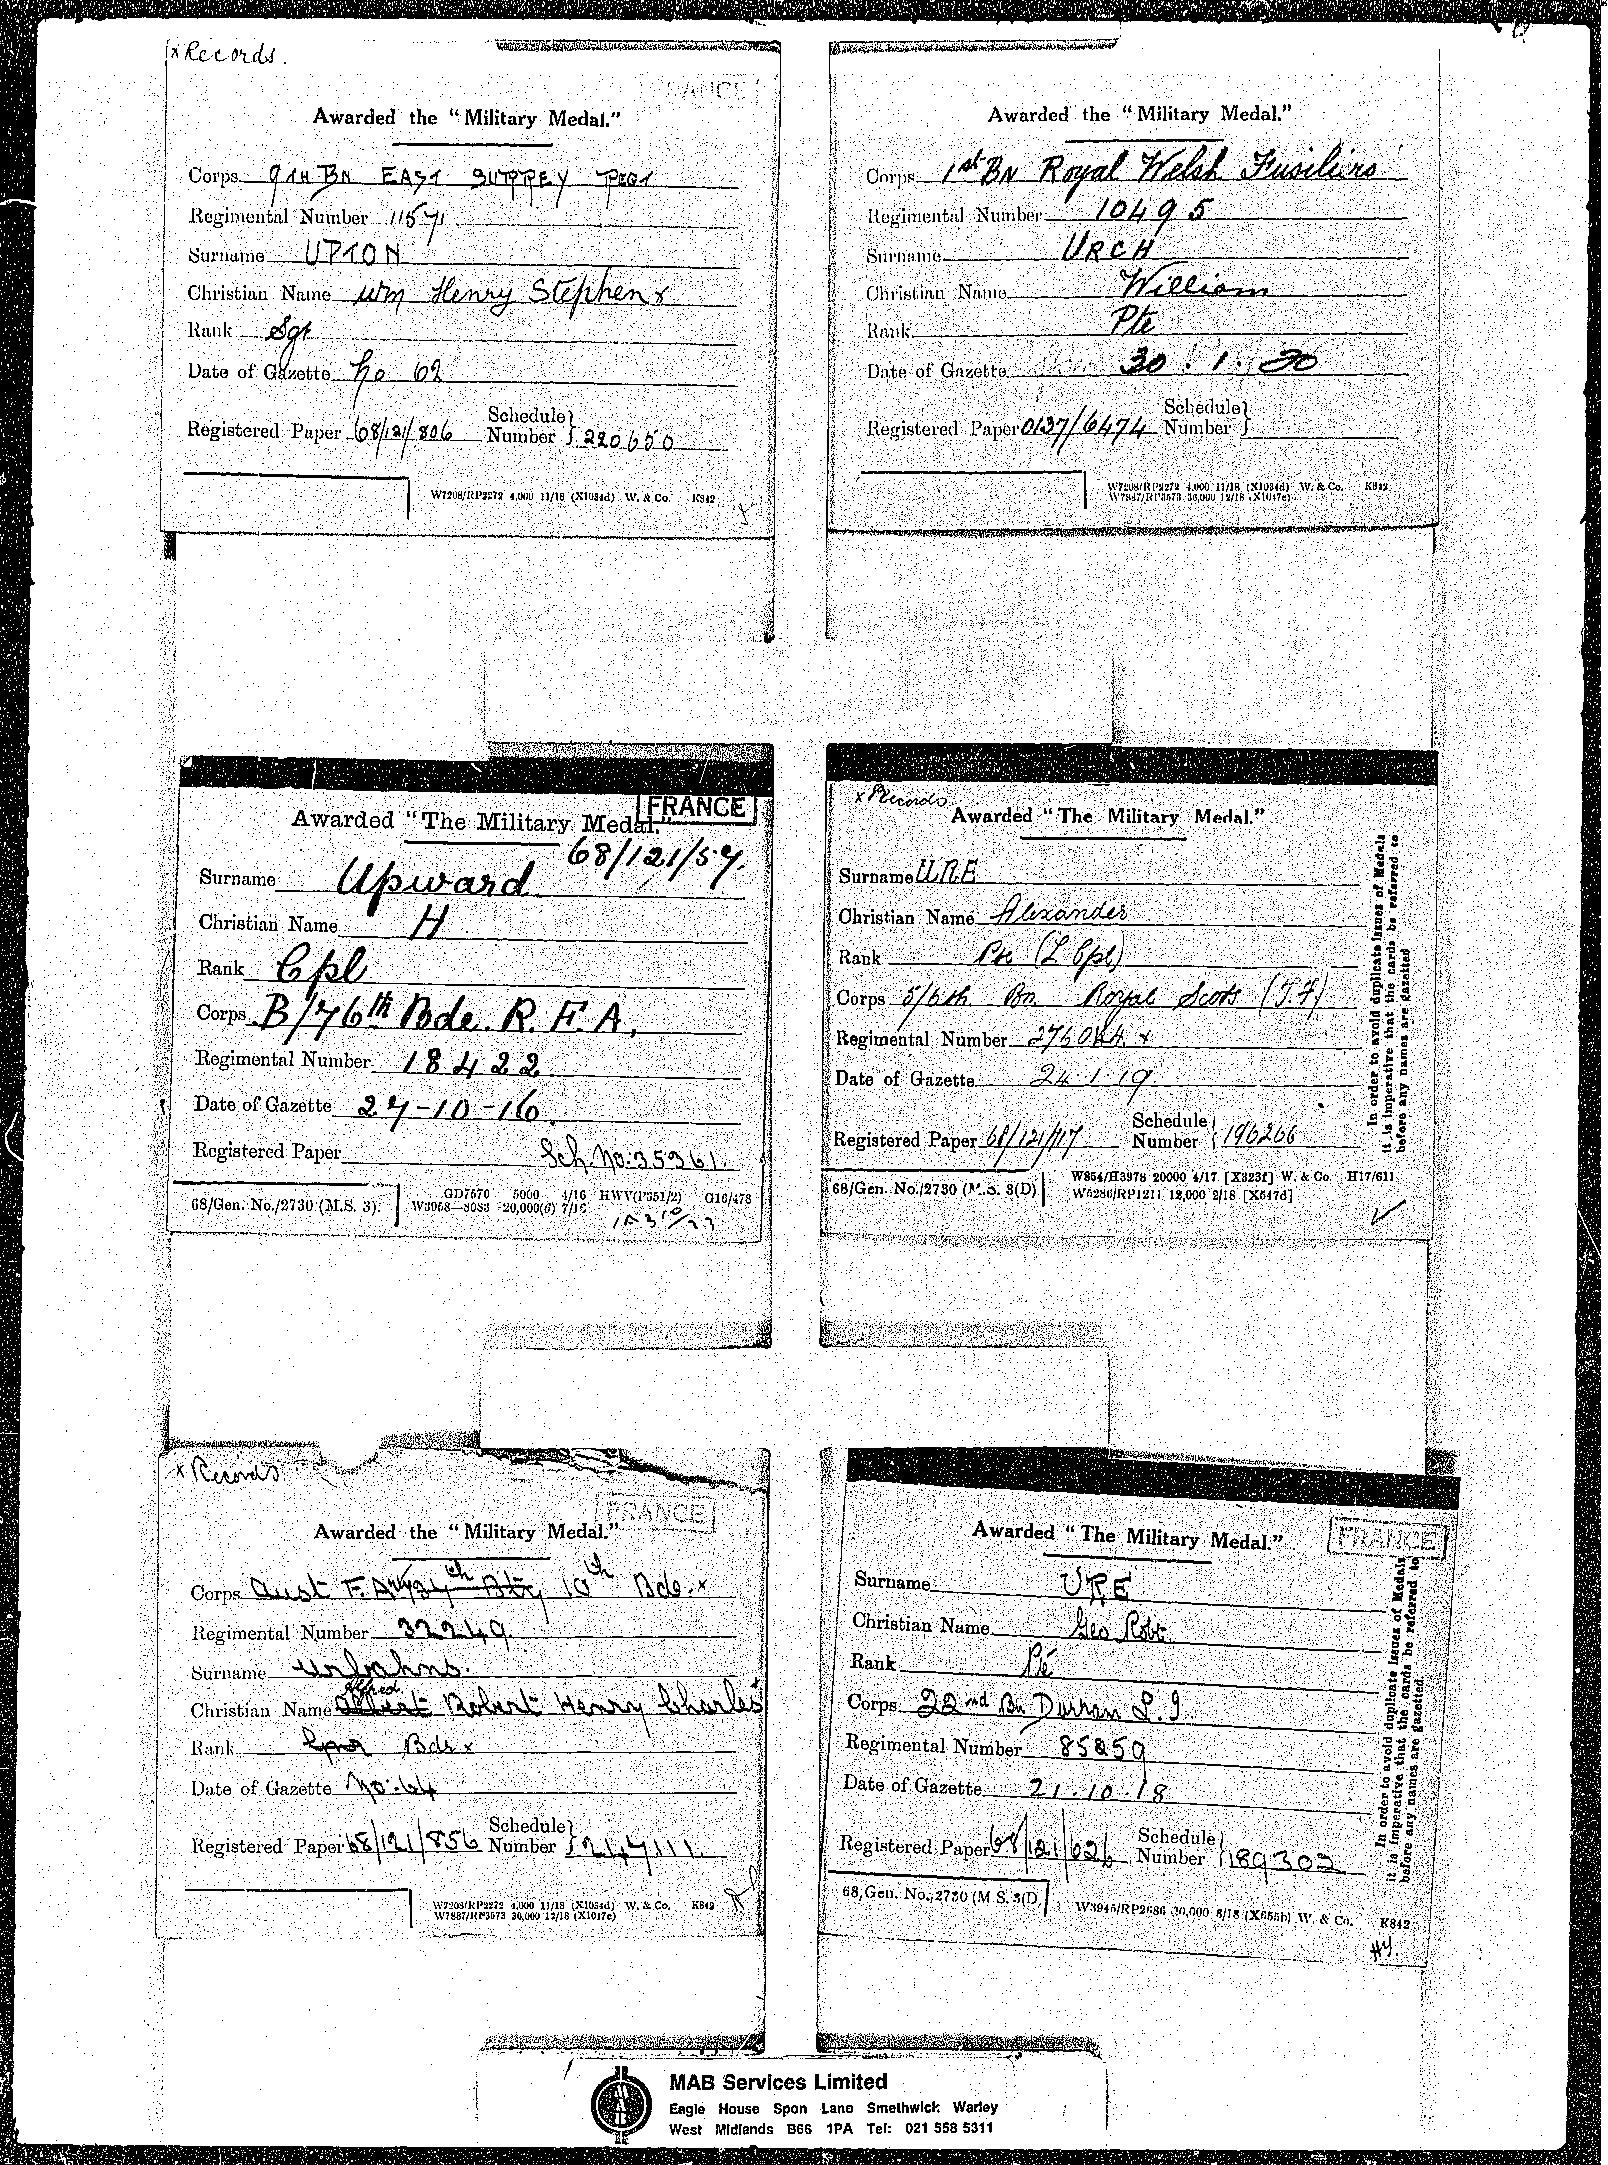 x Records.
FRANCE
Awarded the "Military Medal."
Corps 9TH BN EAST SURREY REGT
Regimental Number 11571
Surname UPTON
Christian Name Wm Henry Stephen x
Rank Sgt
Date of Gazette No 62
Registered Paper 68/121/806 Schedule Number } 220650
W7208/RP2272 4,000 11/18 (X1034d) W. & Co. K842
Awarded the "Military Medal."
Corps 1st BN Royal Welsh Fusiliers
Regimental Number 10495
Surname URCH
Christian Name William
Rank Pte
Date of Gazette 30.1.20
Registered Paper 0137/6474 Schedule Number }
W7208/RP2272 4,000 11/18 (X1034d) W. & Co. K842
W7887/RP3573 30,000 12/18 (X1017e)
FRANCE
Awarded "The Military Medal."
68/121/57.
Surname Upward
Christian Name H
Rank Cpl
Corps B/76th Bde. R.F.A.
Regimental Number 18422
Date of Gazette 27-10-16.
Registered Paper Sch. No: 35361.
68/Gen. No./2730 (M.S. 3).
GD7570 5000 4/16 HWV(P351/2) G16/478
W3068—8083 20,000(6) 7/16
x Records
Awarded "The Military Medal."
Surname URE
Christian Name Alexander
Rank Pte (L Cpl)
Corps 5/6th Bn Royal Scots (T.F)
Regimental Number x
Date of Gazette 24.1.19
Registered Paper 68/121/117 Schedule Number { 196266
68/Gen. No./2730 (M.S. 3(D)
W854/H3978 20000 4/17 [X323f] W. & Co. H17/611
W5280/RP1211 12,000 2/18 [X647d]
In order to avoid duplicate issues of Medals
it is imperative that the cards be referred to
before any names are gazetted
x Records
FRANCE
Awarded the "Military Medal."
Corps Aust F.A. 34th Bty 10th Bde. x
Regimental Number 32249
Surname Urbahns.
Alfred
Christian Name Albert Robert Henry Charles
Rank Gnr Bdr x
Date of Gazette No. 64
Registered Paper 68/121/856 Schedule Number } 247111
W7208/RP2272 4,000 11/18 (X1034d) W. & Co. K842
W7887/RP3573 30,000 12/18 (X1017e)
FRANCE
Awarded "The Military Medal."
Surname URE
Christian Name Geo Robt
Rank Pte
Corps 22nd Bn Durham L.I.
Regimental Number 85859
Date of Gazette 21.10.18
Registered Paper 68/121/626 Schedule Number } 189302
68/Gen. No./2730 (M.S. 3(D)
W3945/RP2686 30,000 8/18 (X655b) W. & Co. K842
In order to avoid duplicate issues of Medals
it is imperative that the cards be referred to
before any names are gazetted.
MAB Services Limited
Eagle House Spon Lane Smethwick Warley
West Midlands B66 1PA Tel: 021 558 5311